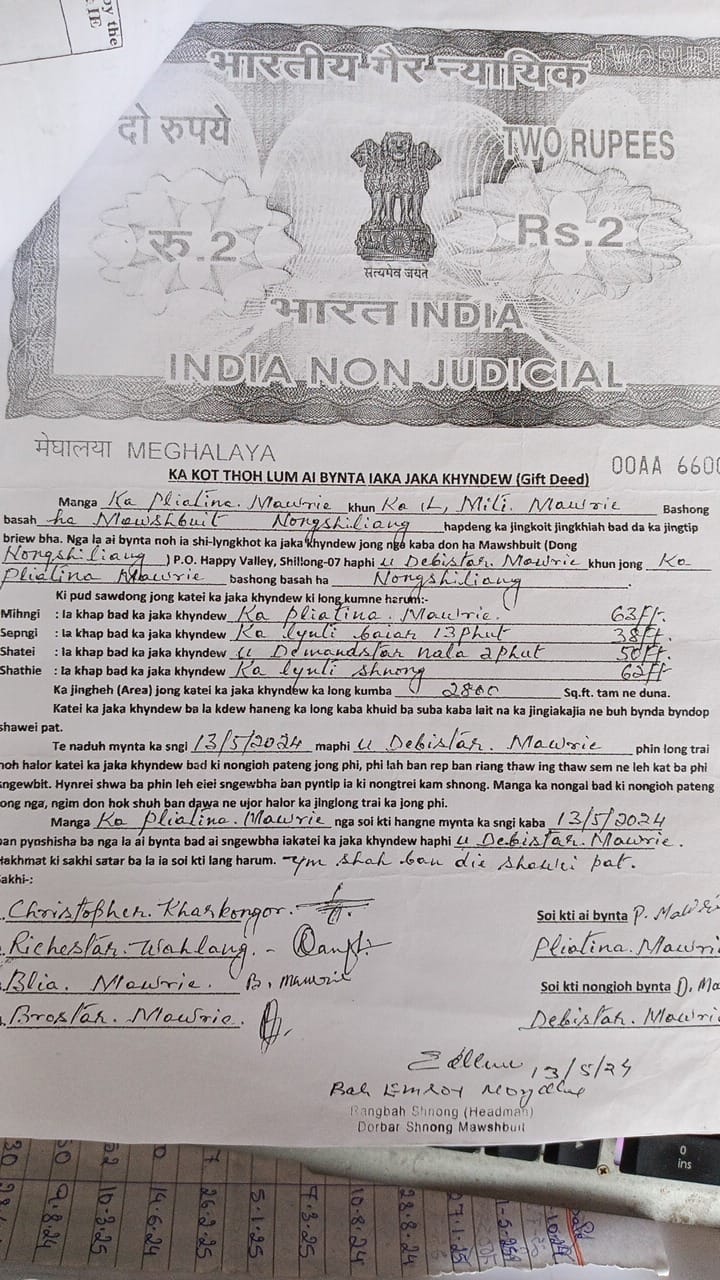 by the
IE
भारतीय गैर न्यायिक
TWO RUPE
दो रुपये
TWO RUPEES
रु.2
Rs.2
सत्यमेव जयते
भारत INDIA
INDIA NON JUDICIAL
मेघालया MEGHALAYA
00AA 6600
KA KOT THOH LUM AI BYNTA IAKA JAKA KHYNDEW (Gift Deed)
Manga Ka Pliatina. Mawrie khun Ka (L, Mili. Mawrie Bashong
basah ha Mawshbuit Nongshiliang hapdeng ka jingkoit jingkhiah bad da ka jingtip
briew bha. Nga la ai bynta noh ia shi-lyngkhot ka jaka khyndew jong nga kaba don ha Mawshbuit (Dong
Nongshiliang ) P.O. Happy Valley, Shillong-07 haphi u Debistar. Mawrie khun jong Ka
Pliatina Mawrie bashong basah ha Nongshiliang
Ki pud sawdong jong katei ka jaka khyndew ki long kumne harum:-
Mihngi : Ia khap bad ka jaka khyndew Ka Pliatina. Mawrie. 63Ft.
Sepngi : Ia khap bad ka jaka khyndew Ka lynti baiar 13 phut 38Ft.
Shatei : Ia khap bad ka jaka khyndew u Demandstar nala 2 phut 50Ft
Shathie : Ia khap bad ka jaka khyndew Ka lynti shnong 62Ft
Ka jingheh (Area) jong katei ka jaka khyndew ka long kumba 2800 Sq.ft. tam ne duna.
Katei ka jaka khyndew ba la kdew haneng ka long kaba khuid ba suba kaba lait na ka jingiakajia ne buh bynda byndop
shawei pat.
Te naduh mynta ka sngi 13/5/2024 maphi u Debistar. Mawrie phin long trai
noh halor katei ka jaka khyndew bad ki nongioh pateng jong phi, phi lah ban rep ban riang thaw ing thaw sem ne leh kat ba phi
sngewbit. Hynrei shwa ba phin leh eiei sngewbha ban pyntip ia ki nongtrei kam shnong. Manga ka nongai bad ki nongioh pateng
jong nga, ngim don hok shuh ban dawa ne ujor halor ka jinglong trai ka jong phi.
Manga Ka Pliatina. Mawrie nga soi kti hangne mynta ka sngi kaba 13/5/2024
ban pynshisha ba nga la ai bynta bad ai sngewbha iakatei ka jaka khyndew haphi u Debistar. Mawrie.
Hakhmat ki sakhi satar ba la ia soi kti lang harum. ym shah ban die shawei pat.
Sakhi-:
Christopher. Kharkongor.
Soi kti ai bynta P. Mawri
Richestar. Wahlang.
Pliatina. Mawri
Blia. Mawrie. B. Mawrie
Soi kti nongioh bynta D. Ma
Brostar. Mawrie.
Debistar. Mawri
13/5/24
Bah Emroy
Rangbah Shnong (Headman)
Dorbar Shnong Mawshbuit
0
ins
9.8.24
10.3.25
14.6.24
26.2.25
5.1.25
7.3.25
10.8.24
28.8.24
27.1.25